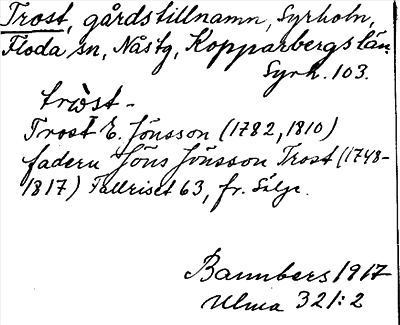 Trost, gårdstillnamn, Syrholn,
Floda sn, Nåstg, Kopparbergs län
Syrh. 103.
trɷst -
Trost E. Jönsson (1782, 1810)
fadern Jöns Jönsson Trost (1748-
1817) Tallriset 63, fr. Sälje.
Bannbers 1917
Ulma 321:2